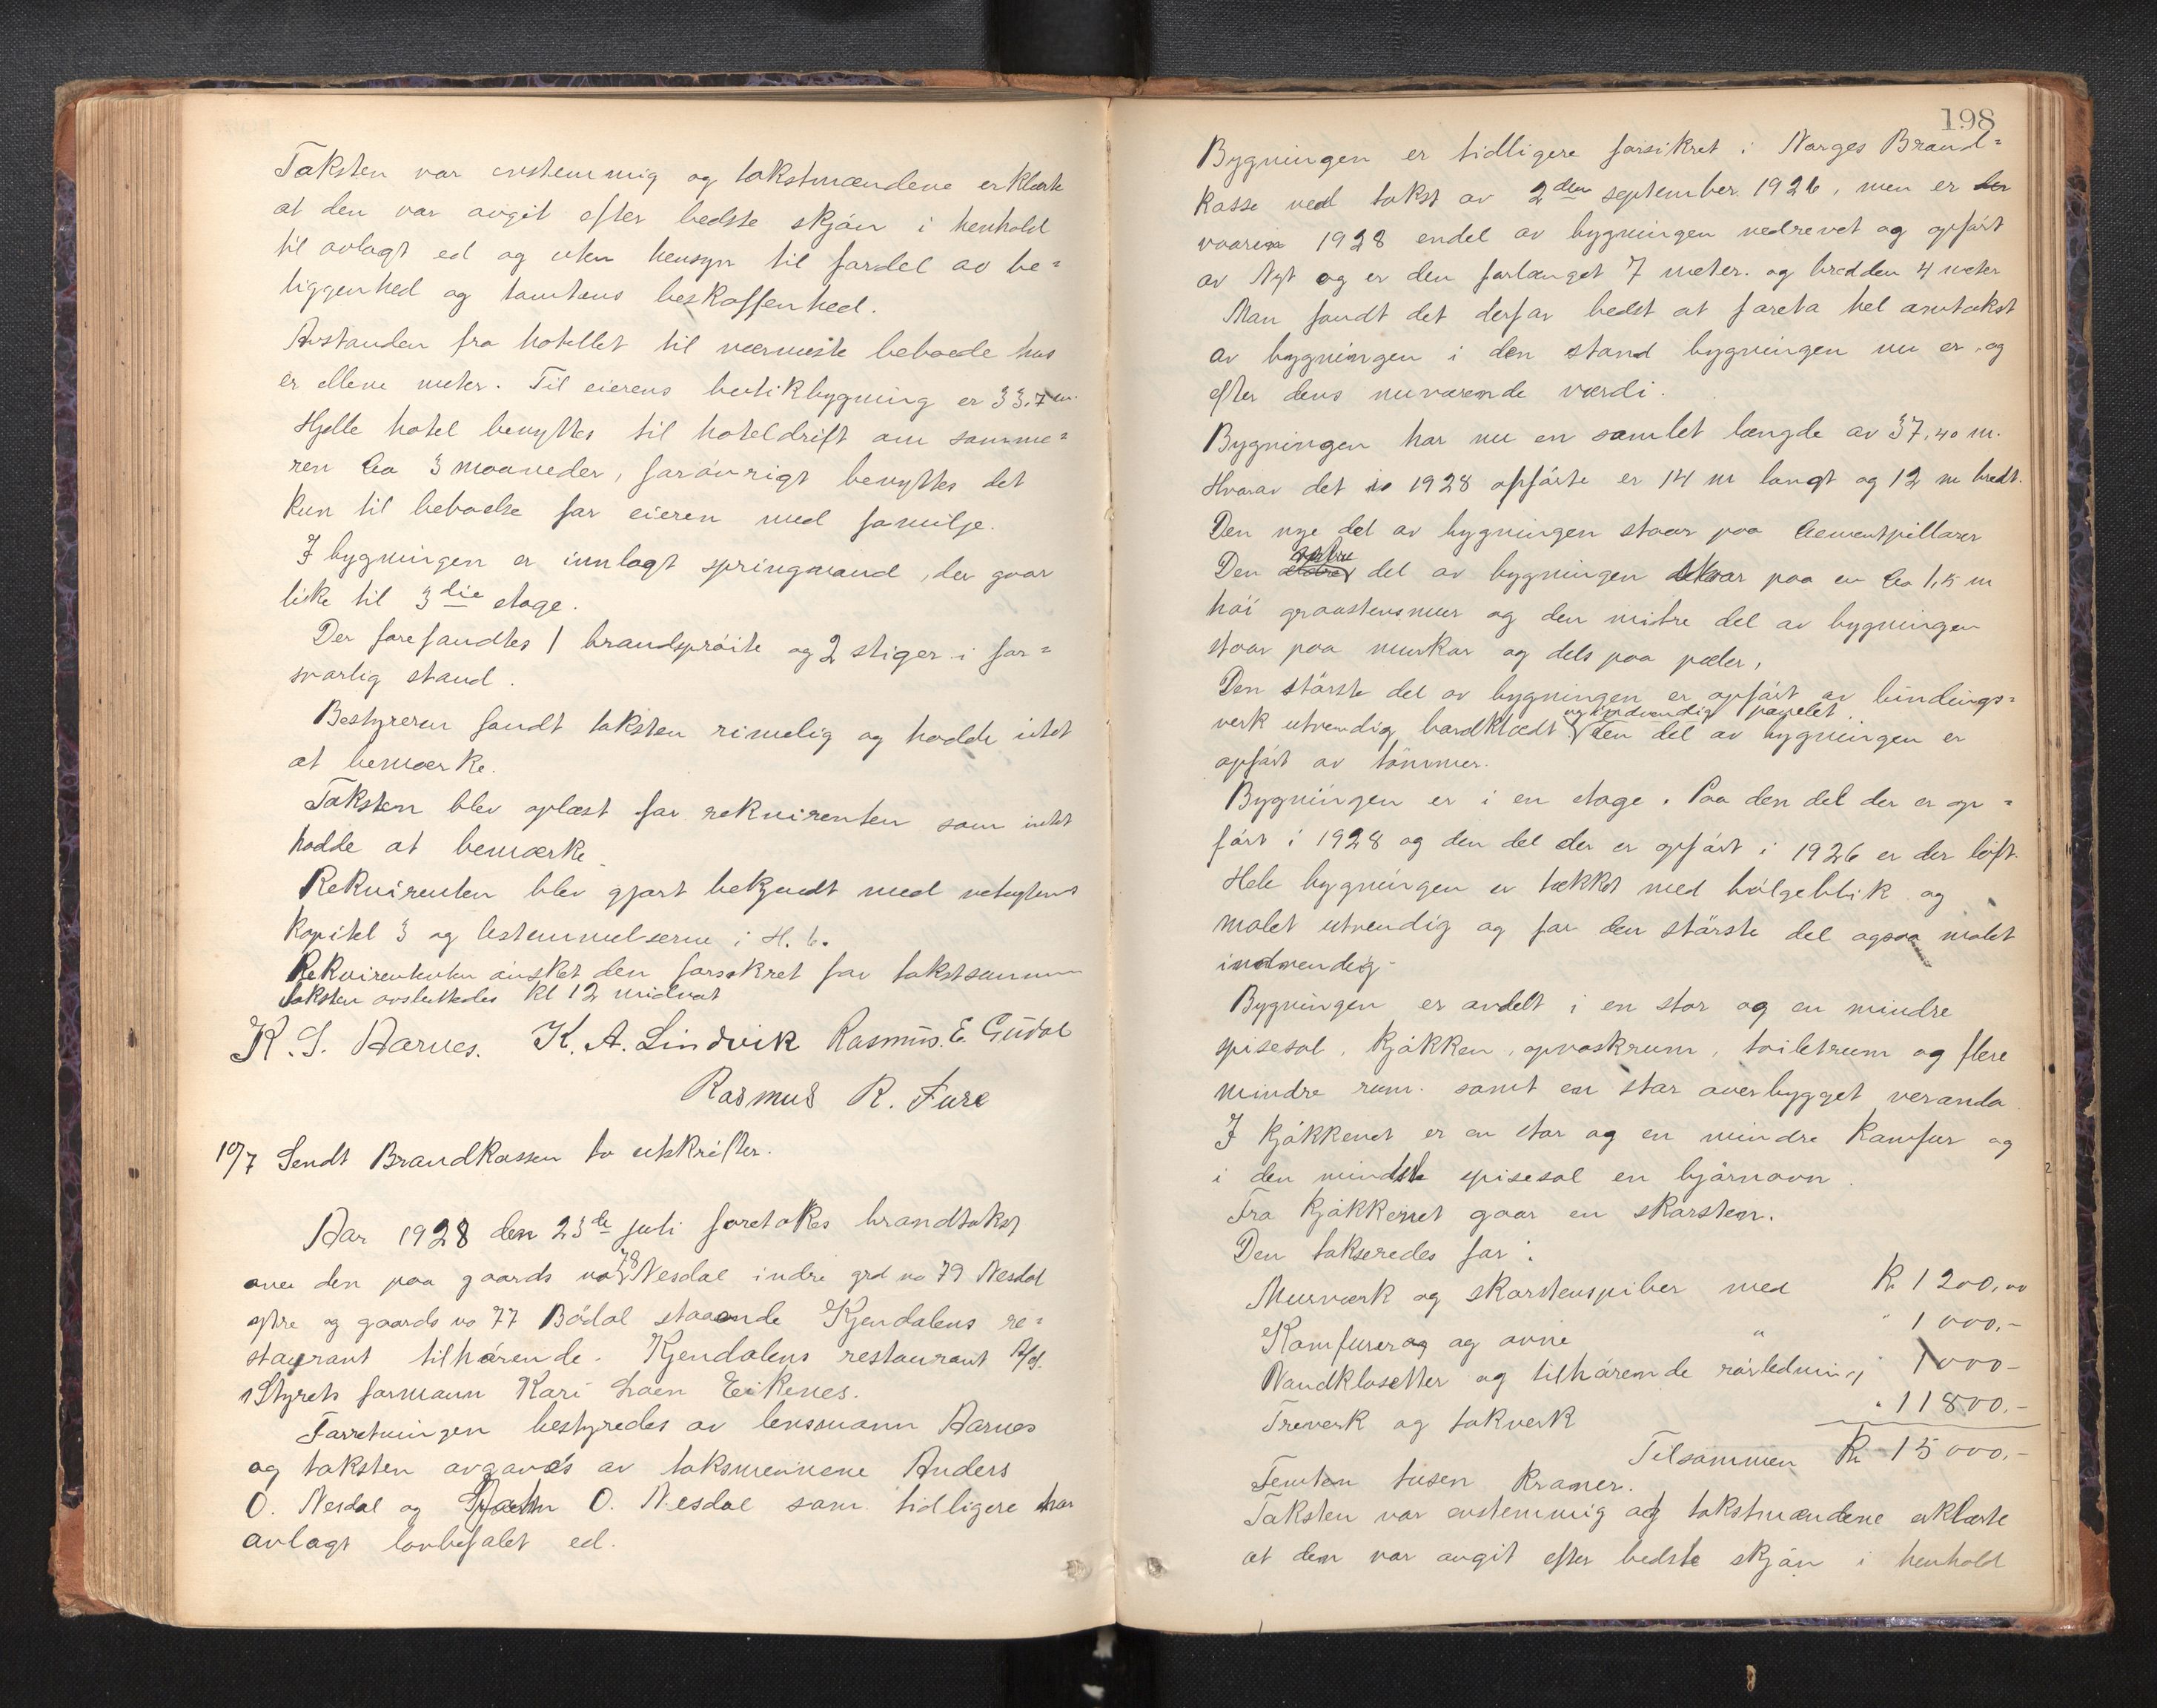 Taksten var enstemmig og takstmændene erklærte
at den var avgit efter bedste skjøn i henhold
til avlagt ed og uten hensyn til fordel av be=
liggenhed og tomtens beskaffenhed.
Avstanden fra hotellet til nærmeste beboede hus
er elleve meter. Til eierens butikbygning er 33,7 m.
Hjelle hotel benyttes til hoteldrift om somme=
ren ca 3 maaneder, forøvrigt benyttes det
kun til beboelse for eieren med familje.
I bygningen er innlagt springvand, der gaar
like til 3die etage.
Der forefandtes 1 brandsprøite og 2 stiger i for=
svarlig stand.
Bestyreren fandt taksten rimelig og hadde intet
at bemærke.
Taksten blev oplæst for rekvirenten som intet
hadde at bemærke.
Rekvirenten blev gjort bekjendt med vedtægtens
kapitel 3 og bestemmelserne i H. 6.
Rekvirenten ønsket den forsikret for takstsummen
Taksten avsluttedes kl 12 midnat
K. S. Aarnes. K. A. Lindvik Rasmus. E. Gudal
Rasmus R. Fure
10/7 Sendt Brandkassen to utskrifter.
Aar 1928 den 23de juli foretokes brandtakst
over den paa gaards no 78 Nesdal indre grd no 79 Nesdal
ytre og gaards no 77 Bødal staaende Kjendalens re=
staurant tilhørende. Kjendalens restaurant A/S.
Styrets formann Kari Loen Eikenes.
Forretningen bestyredes av lensmann Aarnes
og taksten avgaves av taksmennene Anders
O. Nesdal og O. Nesdal som tidligere har
avlagt lovbefalet ed.
198
Bygningen er tidligere forsikret i Norges Brand=
kasse ved takst av 2den september 1926, men er
vaaren 1928 endel av bygningen nedrevet og opført
av Nyt og er den forlænget 7 meter. og bredden 4 meter
Man fandt det derfor bedst at foreta hel omtakst
av bygningen i den stand bygningen nu er, og
efter dens nuværende værdi.
Bygningen har nu en samlet længde av 37,40 m.
Hvorav det i 1928 opførte er 14 m langt og 12 m bredt.
Den nye del av bygningen staar paa Cementpillarer
Den del av bygningen staar paa en ca 1,5 m
høi graastensmur og den mitre del av bygningen
staar paa murkar og dels paa pæler,
Den største del av bygningen er opført av bindings=
verk utvendig bordklædt og indvendig panelet. Den del av bygningen er
opført av tømmer.
Bygningen er i en etage. Paa den del der er op=
ført i 1928 og den del der er opført i 1926 er der loft.
Hele bygningen er tækket med bølgeblik og
malet utvendig og for den største del ogsaa malet
indvendig.
Bygningen er avdelt i en stor og en mindre
spisesal, kjøkken, opvaskrum, toiletrum og flere
mindre rum. samt en stor overbygget veranda.
I kjøkkenet er en stor og en mindre Komfur og
i den mindste spisesal en bjørnovn.
Fra kjøkkenet gaar en skorsten.
Den takseredes for:
Murværk og skorstenspiber med Kr 1200,00
Komfurer og ovne " " 1000,-
Vandklosetter og tilhørende rørledning " 1000-
Treverk og takverk " 11800,-
Tilsammen Kr 15000,-
Femten tusen Kroner.
Taksten var enstemmig og takstmændene erklærte
at den var avgit efter bedste skjøn i henhold